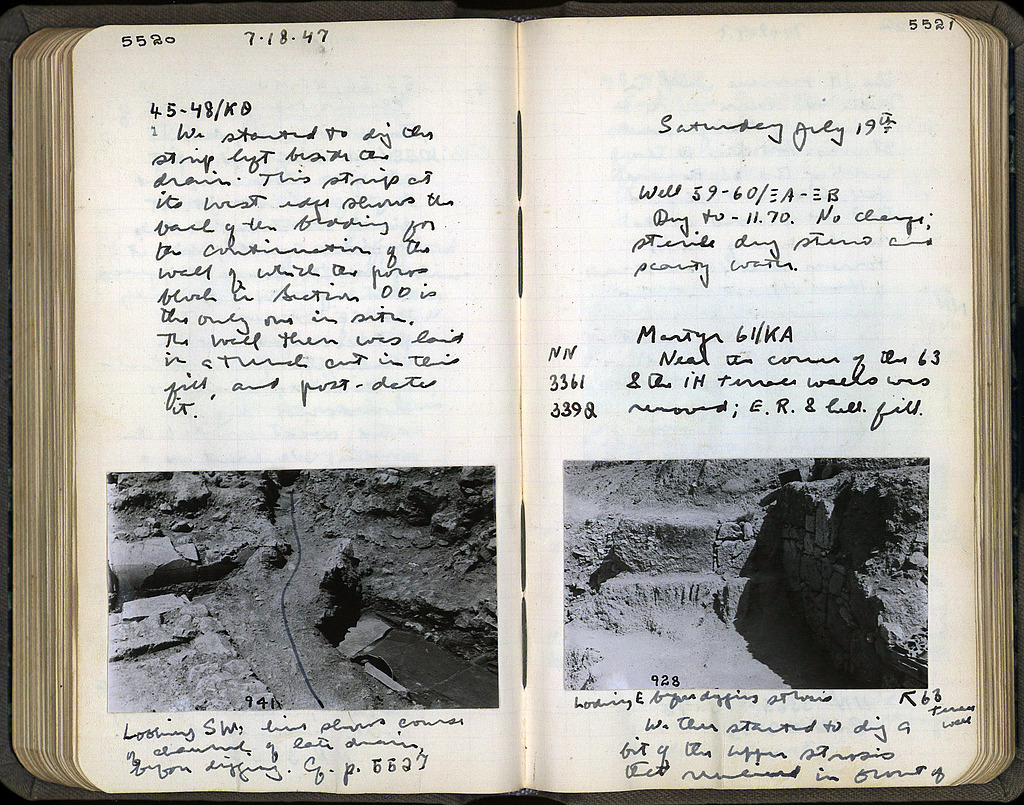 5520
7·18·47
45-48/ΚΘ
We started to dig the
strip left beside the
drain. This strip at
its west edge shows the
back of the bedding for
the continuation of the
wall of which the poros
block in Section ΟΟ is
the only one in situ.
The wall then was laid
in a trench cut in this
fill, and post-dates
it.
941
Looking SW, line shows course
of channel of late drain,
before digging. Cf. p. 5527
5521
Saturday July 19th
Well 59-60/ΞΑ-ΞΒ
Dug to -11.70. No change;
sterile dug stereo and
scanty water.
Martyr 61/ΚΑ
ΝΝ
Near the corner of the 63
3361
& the ΙΗ terrace walls was
3392
removed; E.R. & hell. fill.
928
Looking E before digging strosis
63
terrace
wall
We then started to dig a
bit of the upper strosis
that remained in front of